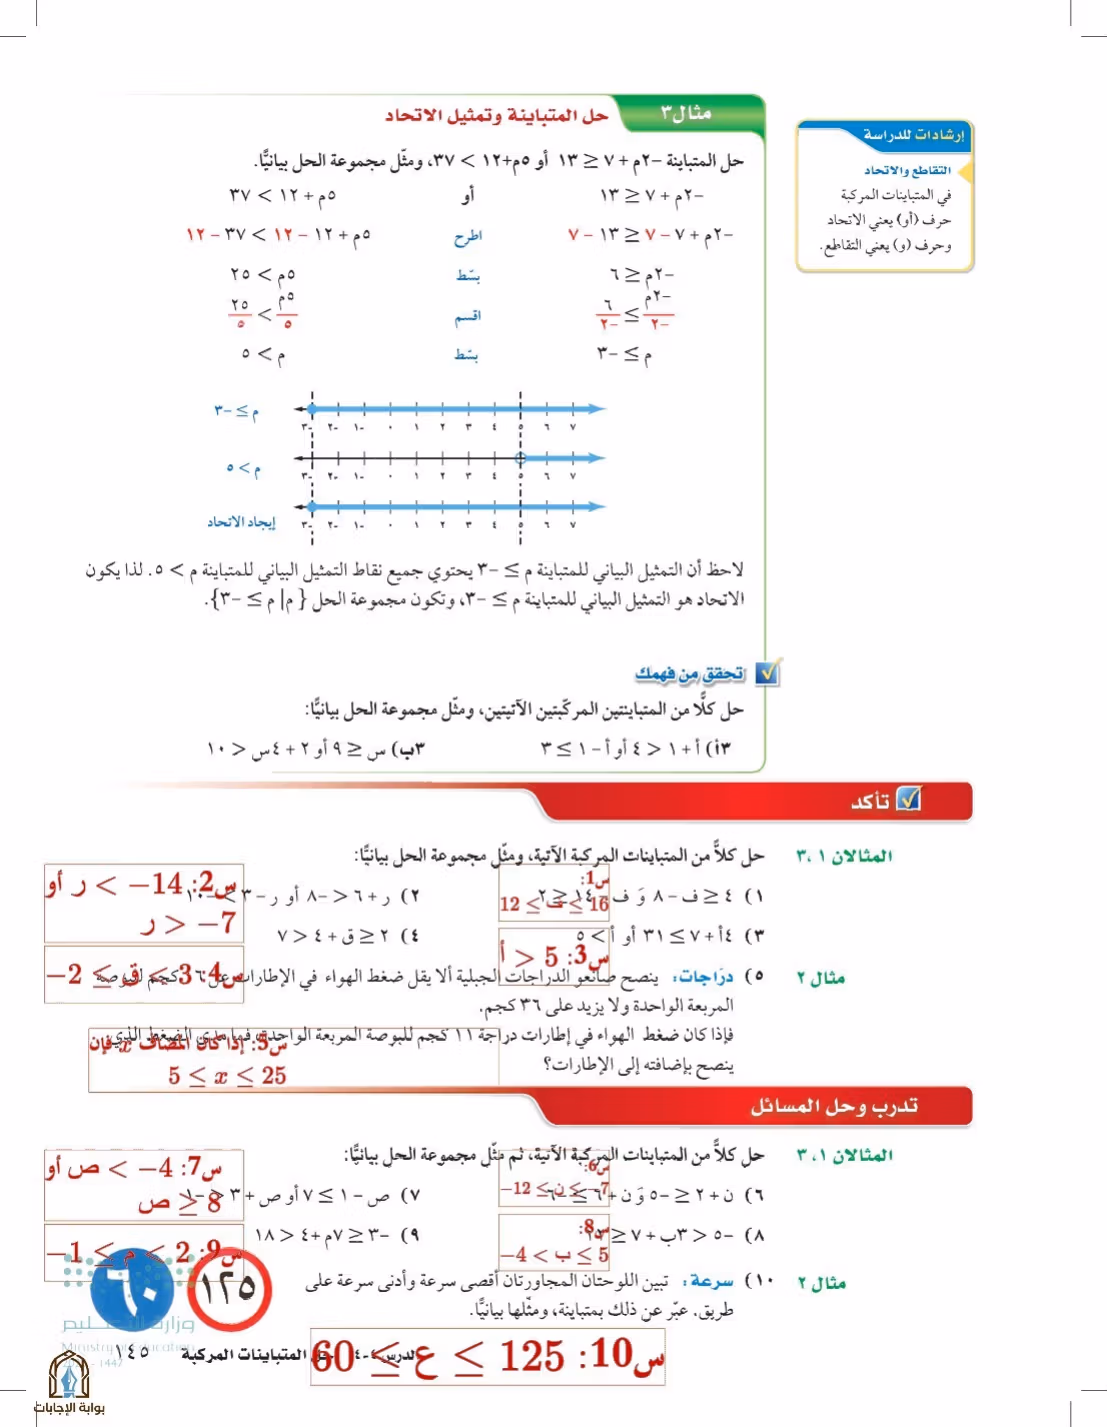 مثال٣ حل المتباينة وتمثيل الاتحاد
حل المتباينة −٢م + ٧ ≤ ١٣ أو ٥م+١٢ > ٣٧، ومثّل مجموعة الحل بيانيًّا.
−٢م + ٧ ≤ ١٣ أو ٥م + ١٢ > ٣٧
−٢م + ٧ − ٧ ≤ ١٣ − ٧ اطرح ٥م + ١٢ − ١٢ > ٣٧ − ١٢
−٢م ≤ ٦ بسّط ٥م > ٢٥
−٢م/−٢ ≥ ٦/−٢ اقسم ٥م/٥ > ٢٥/٥
م ≥ −٣ بسّط م > ٥
م ≥ −٣
−٣ −٢ −١ ٠ ١ ٢ ٣ ٤ ٥ ٦ ٧
م > ٥
−٣ −٢ −١ ٠ ١ ٢ ٣ ٤ ٥ ٦ ٧
إيجاد الاتحاد
−٣ −٢ −١ ٠ ١ ٢ ٣ ٤ ٥ ٦ ٧
لاحظ أن التمثيل البياني للمتباينة م ≥ −٣ يحتوي جميع نقاط التمثيل البياني للمتباينة م > ٥. لذا يكون
الاتحاد هو التمثيل البياني للمتباينة م ≥ −٣، وتكون مجموعة الحل { م| م ≥ −٣}.
إرشادات للدراسة
التقاطع والاتحاد
في المتباينات المركبة
حرف (أو) يعني الاتحاد
وحرف (و) يعني التقاطع.
تحقق من فهمك
حل كلًّا من المتباينتين المركّبتين الآتيتين، ومثّل مجموعة الحل بيانيًّا:
٣أ) أ + ١ < ٤ أو أ − ١ ≥ ٣ ٣ب) س ≤ ٩ أو ٢ + ٤س < ١٠
تأكد
المثالان ١، ٣ حل كلاًّ من المتباينات المركبة الآتية، ومثّل مجموعة الحل بيانيًّا:
١) ٤ ≤ ف − ٨ وَ ف − ١٤ ≤ ٢ ٢) ر + ٦ < −٨ أو ر − ٣ > −١٠
س1: 12 ≤ ف ≤ 16
س2: −14 > ر أو
−7 < ر
٣) ٤أ + ٧ ≥ ٣١ أو أ > ٥ ٤) ٢ ≤ ق + ٤ < ٧
س3: 5 < أ
س4: 3 > ق ≥ −2
مثال ٢ ٥) درّاجات: ينصح صانعو الدراجات الجبلية ألا يقل ضغط الهواء في الإطارات عن ١٦ كجم للبوصة
المربعة الواحدة ولا يزيد على ٣٦ كجم.
فإذا كان ضغط الهواء في إطارات دراجة ١١ كجم للبوصة المربعة الواحدة، فما مدى الضغط الذي
ينصح بإضافته إلى الإطارات؟
س5: إذا كان المضاف x فإن
5 ≤ x ≤ 25
تدرب وحل المسائل
المثالان ١، ٣ حل كلاًّ من المتباينات المركبة الآتية، ثم مثّل مجموعة الحل بيانيًّا:
٦) ن + ٢ ≤ −٥ وَ ن + ٦ ≥ −٦ ٧) ص − ١ ≥ ٧ أو ص + ٣ < −١
س6:
−12 ≤ ن ≤ −7
س7: −4 > ص أو
8 ≤ ص
٨) −٥ < ٣ب + ٧ ≤ ٢٢ ٩) −٣ ≤ ٧م + ٤ < ١٨
س8:
−4 < ب ≤ 5
س9: 2 > م ≥ −1
مثال ٢ ١٠) سرعة: تبين اللوحتان المجاورتان أقصى سرعة وأدنى سرعة على
طريق. عبّر عن ذلك بمتباينة، ومثّلها بيانيًّا.
١٢٥
٦٠
س10: 125 ≥ ع ≥ 60
وزارة التعليم
Ministry of Education
1447
الدرس ٤-٤ حل المتباينات المركبة ١٤٥
بوابة الإجابات